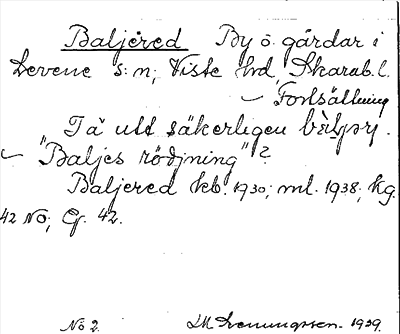 Baljered By o. gårdar i
Levene s:n, Viste hrd, Skarab. l.
– Fortsättning
Ta utt säkerligen
– "Baljes rödjning"?
Baljered kb. 1930; ml. 1938; kg.
42 NO; Gf. 42.
No 2. 1939.